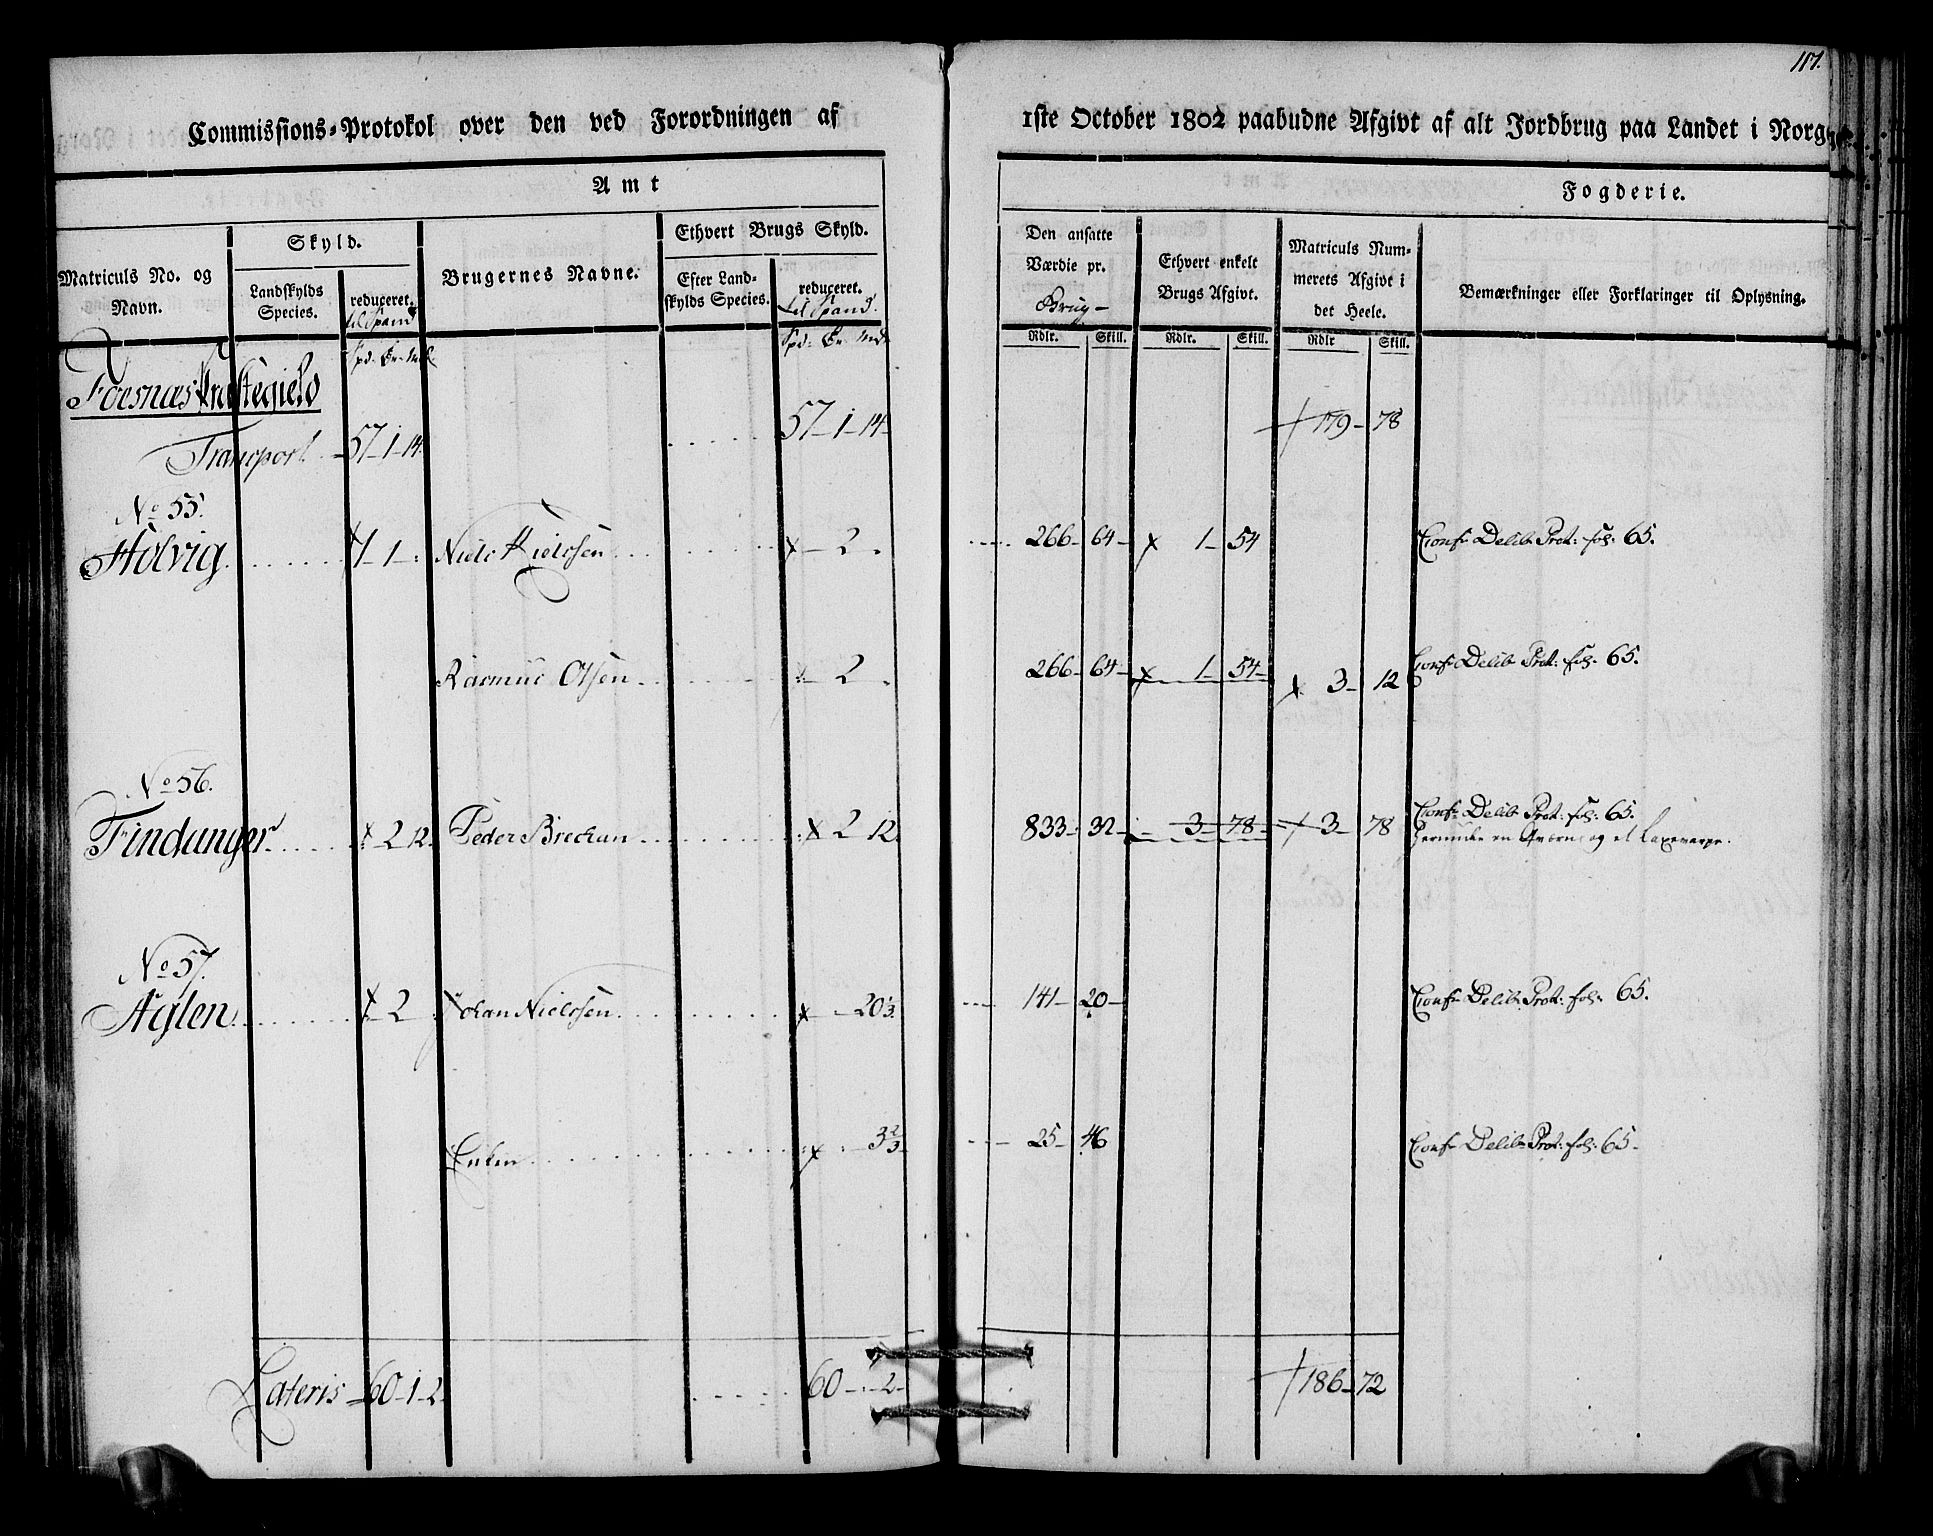 117.
Commissions-Protokol over den ved Forordningen af 1ste October 1802 paabudne Afgivt af alt Jordbrug paa Landet i Norge.
Amt Fogderie.
Matriculs No. og Navn.
Skyld.
Landskylds Species.
reduceret. til Spand
Brugernes Navne.
Ethvert Brugs Skyld.
Efter Landskylds Species.
reduceret. til Spand.
Den ansatte Værdie pr. Brug
Ethvert enkelt Brugs Afgivt.
Matriculs Nummerets Afgivt i det Heele.
Bemærkninger eller Forklaringer til Oplysning.
Rdlr. Skill. Rdlr. Skill. Rdlr Skill.
Foesnæs Præstegield
Transport 57-1-14. 57-1-14 179-78
No 55.
Holvig 1-1- Niels Nielssen 2 266-64 1-54 Conf. Delib. Prot: fol: 65.
Rasmus Olsen 2 266-64 1-54 3-12 Conf. Delib. Prot: fol: 65.
No 56.
Findanger 2 12 Peder Brechan 2 12 833-32 3-78 3-78 Conf. Delib. Prot: fol: 65.
herunder en Qværn og et Laxevarpe.
No 57.
Aglen 2 Johan Nielssen 20 1/3 141-20 Conf. Delib. Prot: fol: 65.
Enken 3 2/3 25-46 Conf. Delib. Prot: fol: 65.
Lateris 60-1-2 60 - 2 186-72